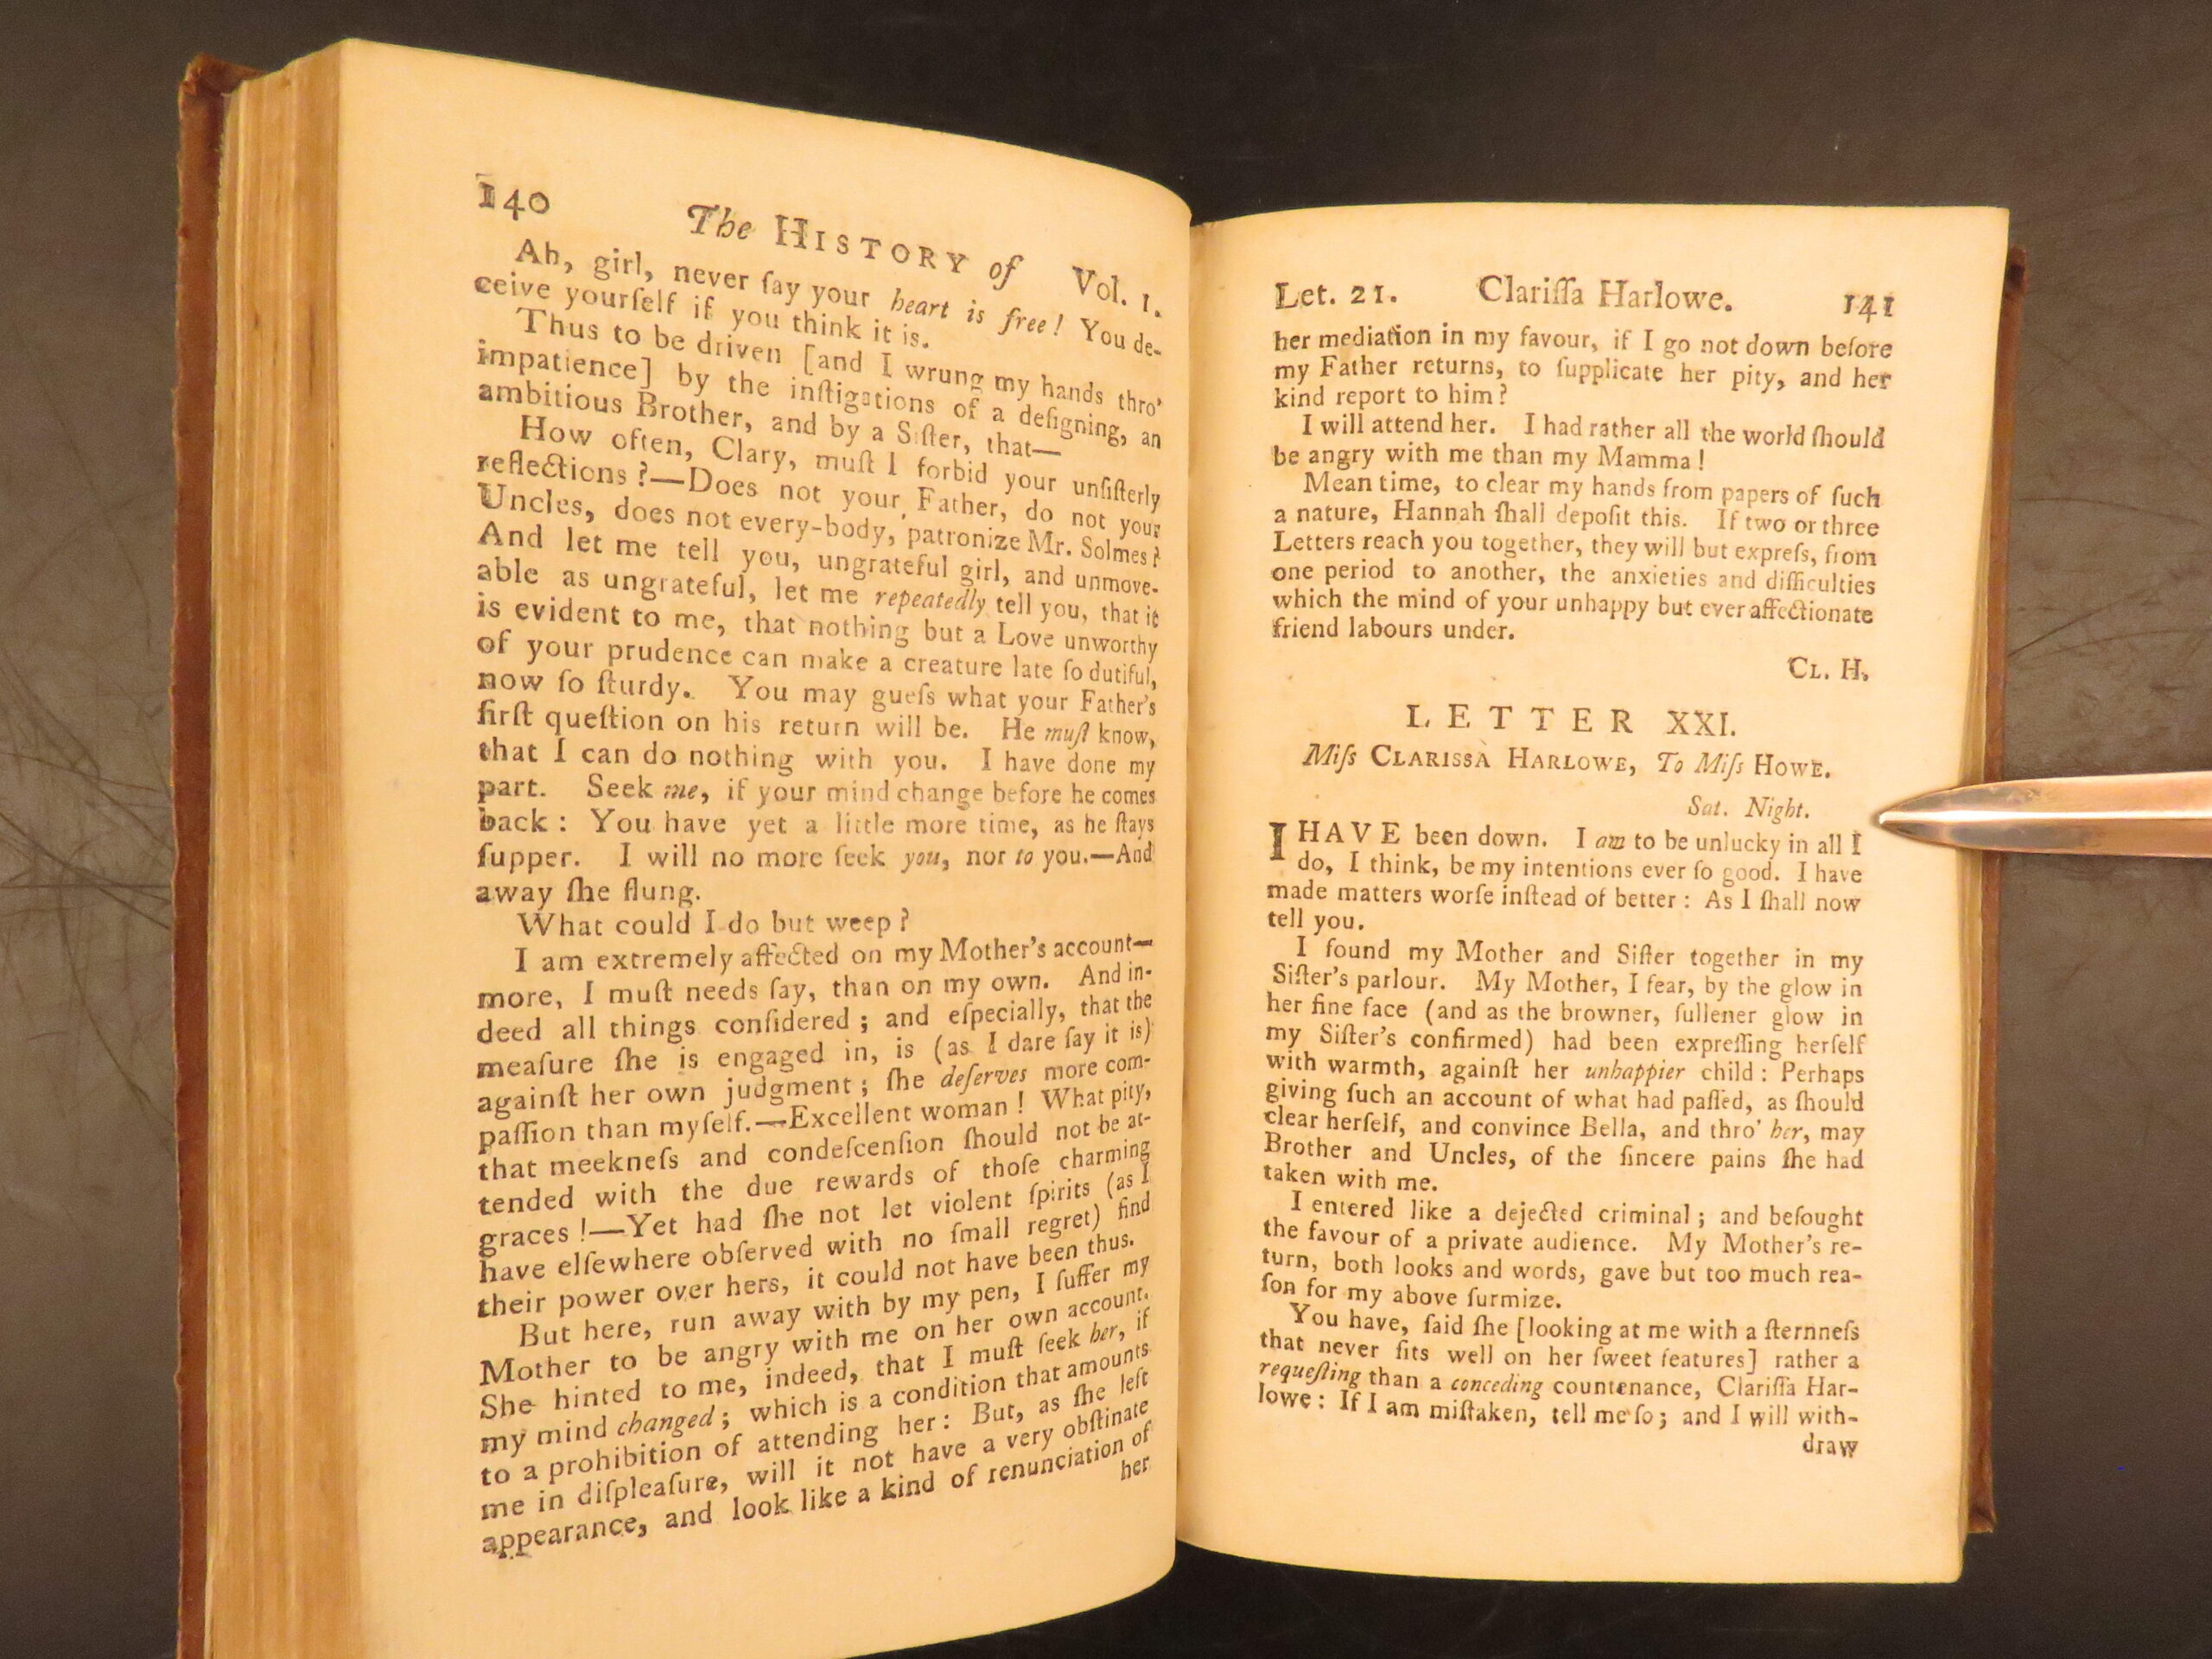 140 The HISTORY of Vol. 1.
Ah, girl, never ſay your heart is free! You de-
ceive yourſelf if you think it is.
Thus to be driven [and I wrung my hands thro'
impatience] by the inſtigations of a deſigning, an
ambitious Brother, and by a Siſter, that—
How often, Clary, muſt I forbid your unſiſterly
reflections?—Does not your Father, do not your
Uncles, does not every-body, patronize Mr. Solmes?
And let me tell you, ungrateful girl, and unmove-
able as ungrateful, let me repeatedly tell you, that it
is evident to me, that nothing but a Love unworthy
of your prudence can make a creature late ſo dutiful,
now ſo ſturdy. You may gueſs what your Father's
firſt queſtion on his return will be. He muſt know,
that I can do nothing with you. I have done my
part. Seek me, if your mind change before he comes
back: You have yet a little more time, as he ſtays
ſupper. I will no more ſeek you, nor to you.—And
away ſhe flung.
What could I do but weep?
I am extremely affected on my Mother's account—
more, I muſt needs ſay, than on my own. And in-
deed all things conſidered; and eſpecially, that the
meaſure ſhe is engaged in, is (as I dare ſay it is)
againſt her own judgment; ſhe deſerves more com-
paſſion than myſelf.—Excellent woman! What pity,
that meekneſs and condeſcenſion ſhould not be at-
tended with the due rewards of thoſe charming
graces!—Yet had ſhe not let violent ſpirits (as I
have elſewhere obſerved with no ſmall regret) find
their power over hers, it could not have been thus.
But here, run away with by my pen, I ſuffer my
Mother to be angry with me on her own account.
She hinted to me, indeed, that I muſt ſeek her, if
my mind changed; which is a condition that amounts
to a prohibition of attending her: But, as ſhe left
me in diſpleaſure, will it not have a very obſtinate
appearance, and look like a kind of renunciation of
her
Let. 21. Clariſſa Harlowe. 141
her mediation in my favour, if I go not down before
my Father returns, to ſupplicate her pity, and her
kind report to him?
I will attend her. I had rather all the world ſhould
be angry with me than my Mamma!
Mean time, to clear my hands from papers of ſuch
a nature, Hannah ſhall depoſit this. If two or three
Letters reach you together, they will but expreſs, from
one period to another, the anxieties and difficulties
which the mind of your unhappy but ever affectionate
friend labours under.
CL. H.
LETTER XXI.
Miſs CLARISSA HARLOWE, To Miſs HOWE.
Sat. Night.
I HAVE been down. I am to be unlucky in all I
do, I think, be my intentions ever ſo good. I have
made matters worſe inſtead of better: As I ſhall now
tell you.
I found my Mother and Siſter together in my
Siſter's parlour. My Mother, I fear, by the glow in
her fine face (and as the browner, ſullener glow in
my Siſter's confirmed) had been expreſſing herſelf
with warmth, againſt her unhappier child: Perhaps
giving ſuch an account of what had paſſed, as ſhould
clear herſelf, and convince Bella, and thro' her, may
Brother and Uncles, of the ſincere pains ſhe had
taken with me.
I entered like a dejected criminal; and beſought
the favour of a private audience. My Mother's re-
turn, both looks and words, gave but too much rea-
ſon for my above ſurmize.
You have, ſaid ſhe [looking at me with a ſternneſs
that never ſits well on her ſweet features] rather a
requeſting than a conceding countenance, Clariſſa Har-
lowe: If I am miſtaken, tell me ſo; and I will with-
draw